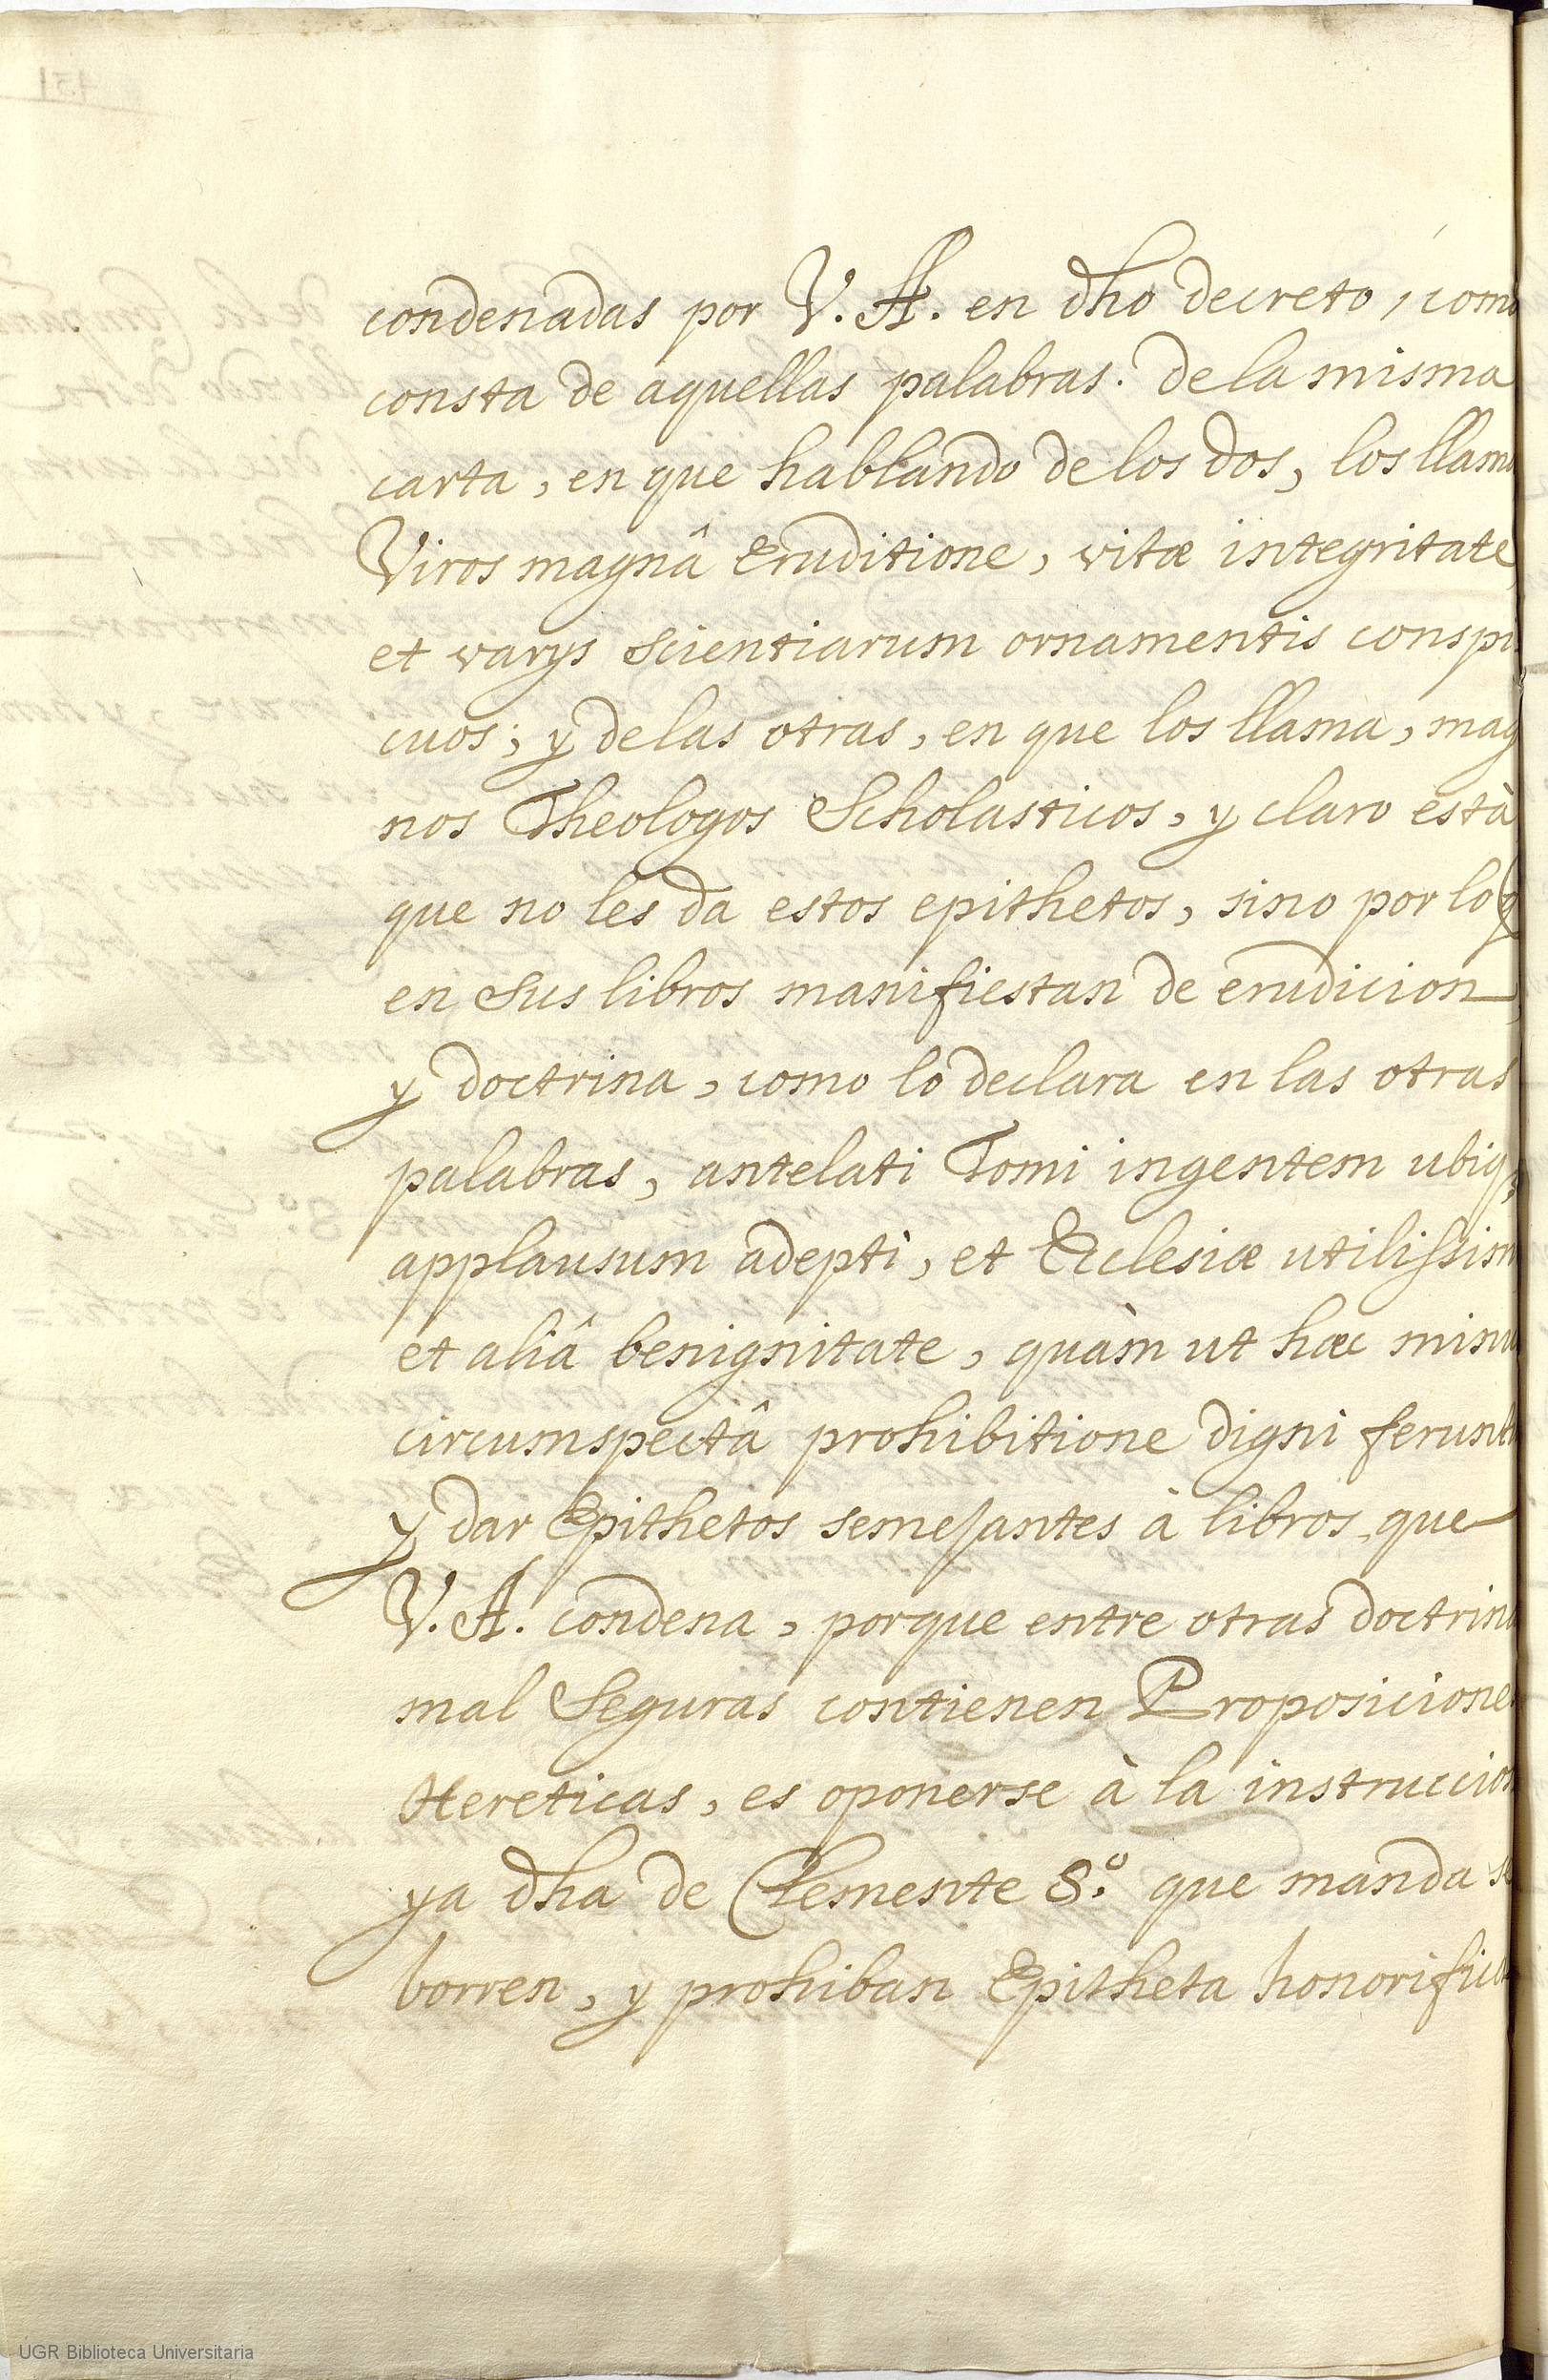 condenadas por V. A. en dho decreto, como
consta de aquellas palabras. de la misma
carta, en que hablando de los dos, los llama
Viros magnâ Eruditione, vitæ integritate,
et varys scientiarum ornamentis conspi
cuos; y de las otras, en que los llama, mag
nos Theologos Scholasticos, y claro està
que no les da estos epithetos, sino por lo q
en sus libros manifiestan de erudicion
y doctrina, como lo declara en las otras
palabras, antelati Tomi ingentem ubiq,
applausum adepti, et Ecclesiæ utilissim
et aliâ benignitate, quàm ut hæc minu
circumspectâ prohibitione digni ferunt
y dar Epithetos semejantes à libros que
V. A. condena, porque entre otras doctrina
mal Seguras contienen Proposicione
Hereticas, es oponerse à la instruccion
ya dha de Clemente 8º. que manda se
borren, y prohiban Epitheta honorifica
UGR Biblioteca Universitaria